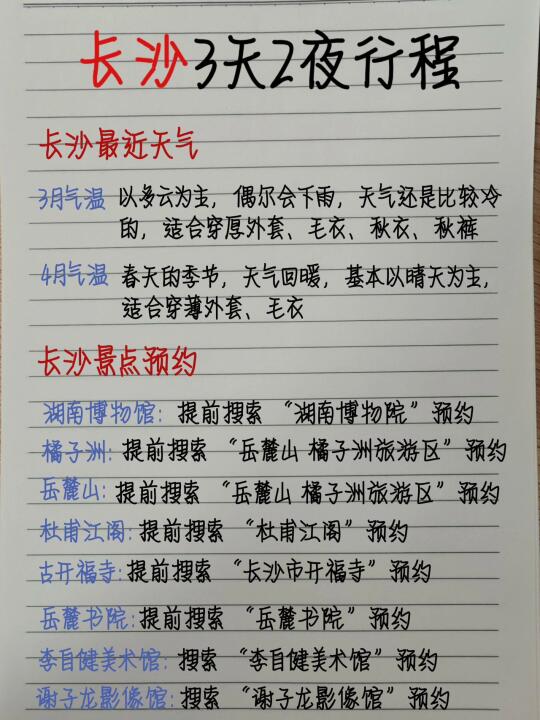 长沙3天2夜行程
长沙最近天气
3月气温 以多云为主，偶尔会下雨，天气还是比较冷
的，适合穿厚外套、毛衣、秋衣、秋裤
4月气温 春天的季节，天气回暖，基本以晴天为主，
适合穿薄外套、毛衣
长沙景点预约
湖南博物馆：提前搜索 “湖南博物院” 预约
橘子洲：提前搜索 “岳麓山 橘子洲旅游区” 预约
岳麓山：提前搜索 “岳麓山 橘子洲旅游区” 预约
杜甫江阁：提前搜索 “杜甫江阁” 预约
古开福寺：提前搜索 “长沙市开福寺” 预约
岳麓书院：提前搜索 “岳麓书院” 预约
李自健美术馆：搜索 “李自健美术馆” 预约
谢子龙影像馆：搜索 “谢子龙影像馆” 预约